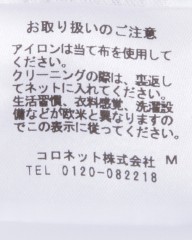 お取り扱いのご注意
アイロンは当て布を使用して
ください。
クリーニングの際は、裏返し
てネットに入れてください。
生活習慣、衣料感覚、洗濯設
備などが欧米と異なりますので
この表示に従ってください。
コロネット株式会社 M
TEL 0120-082218